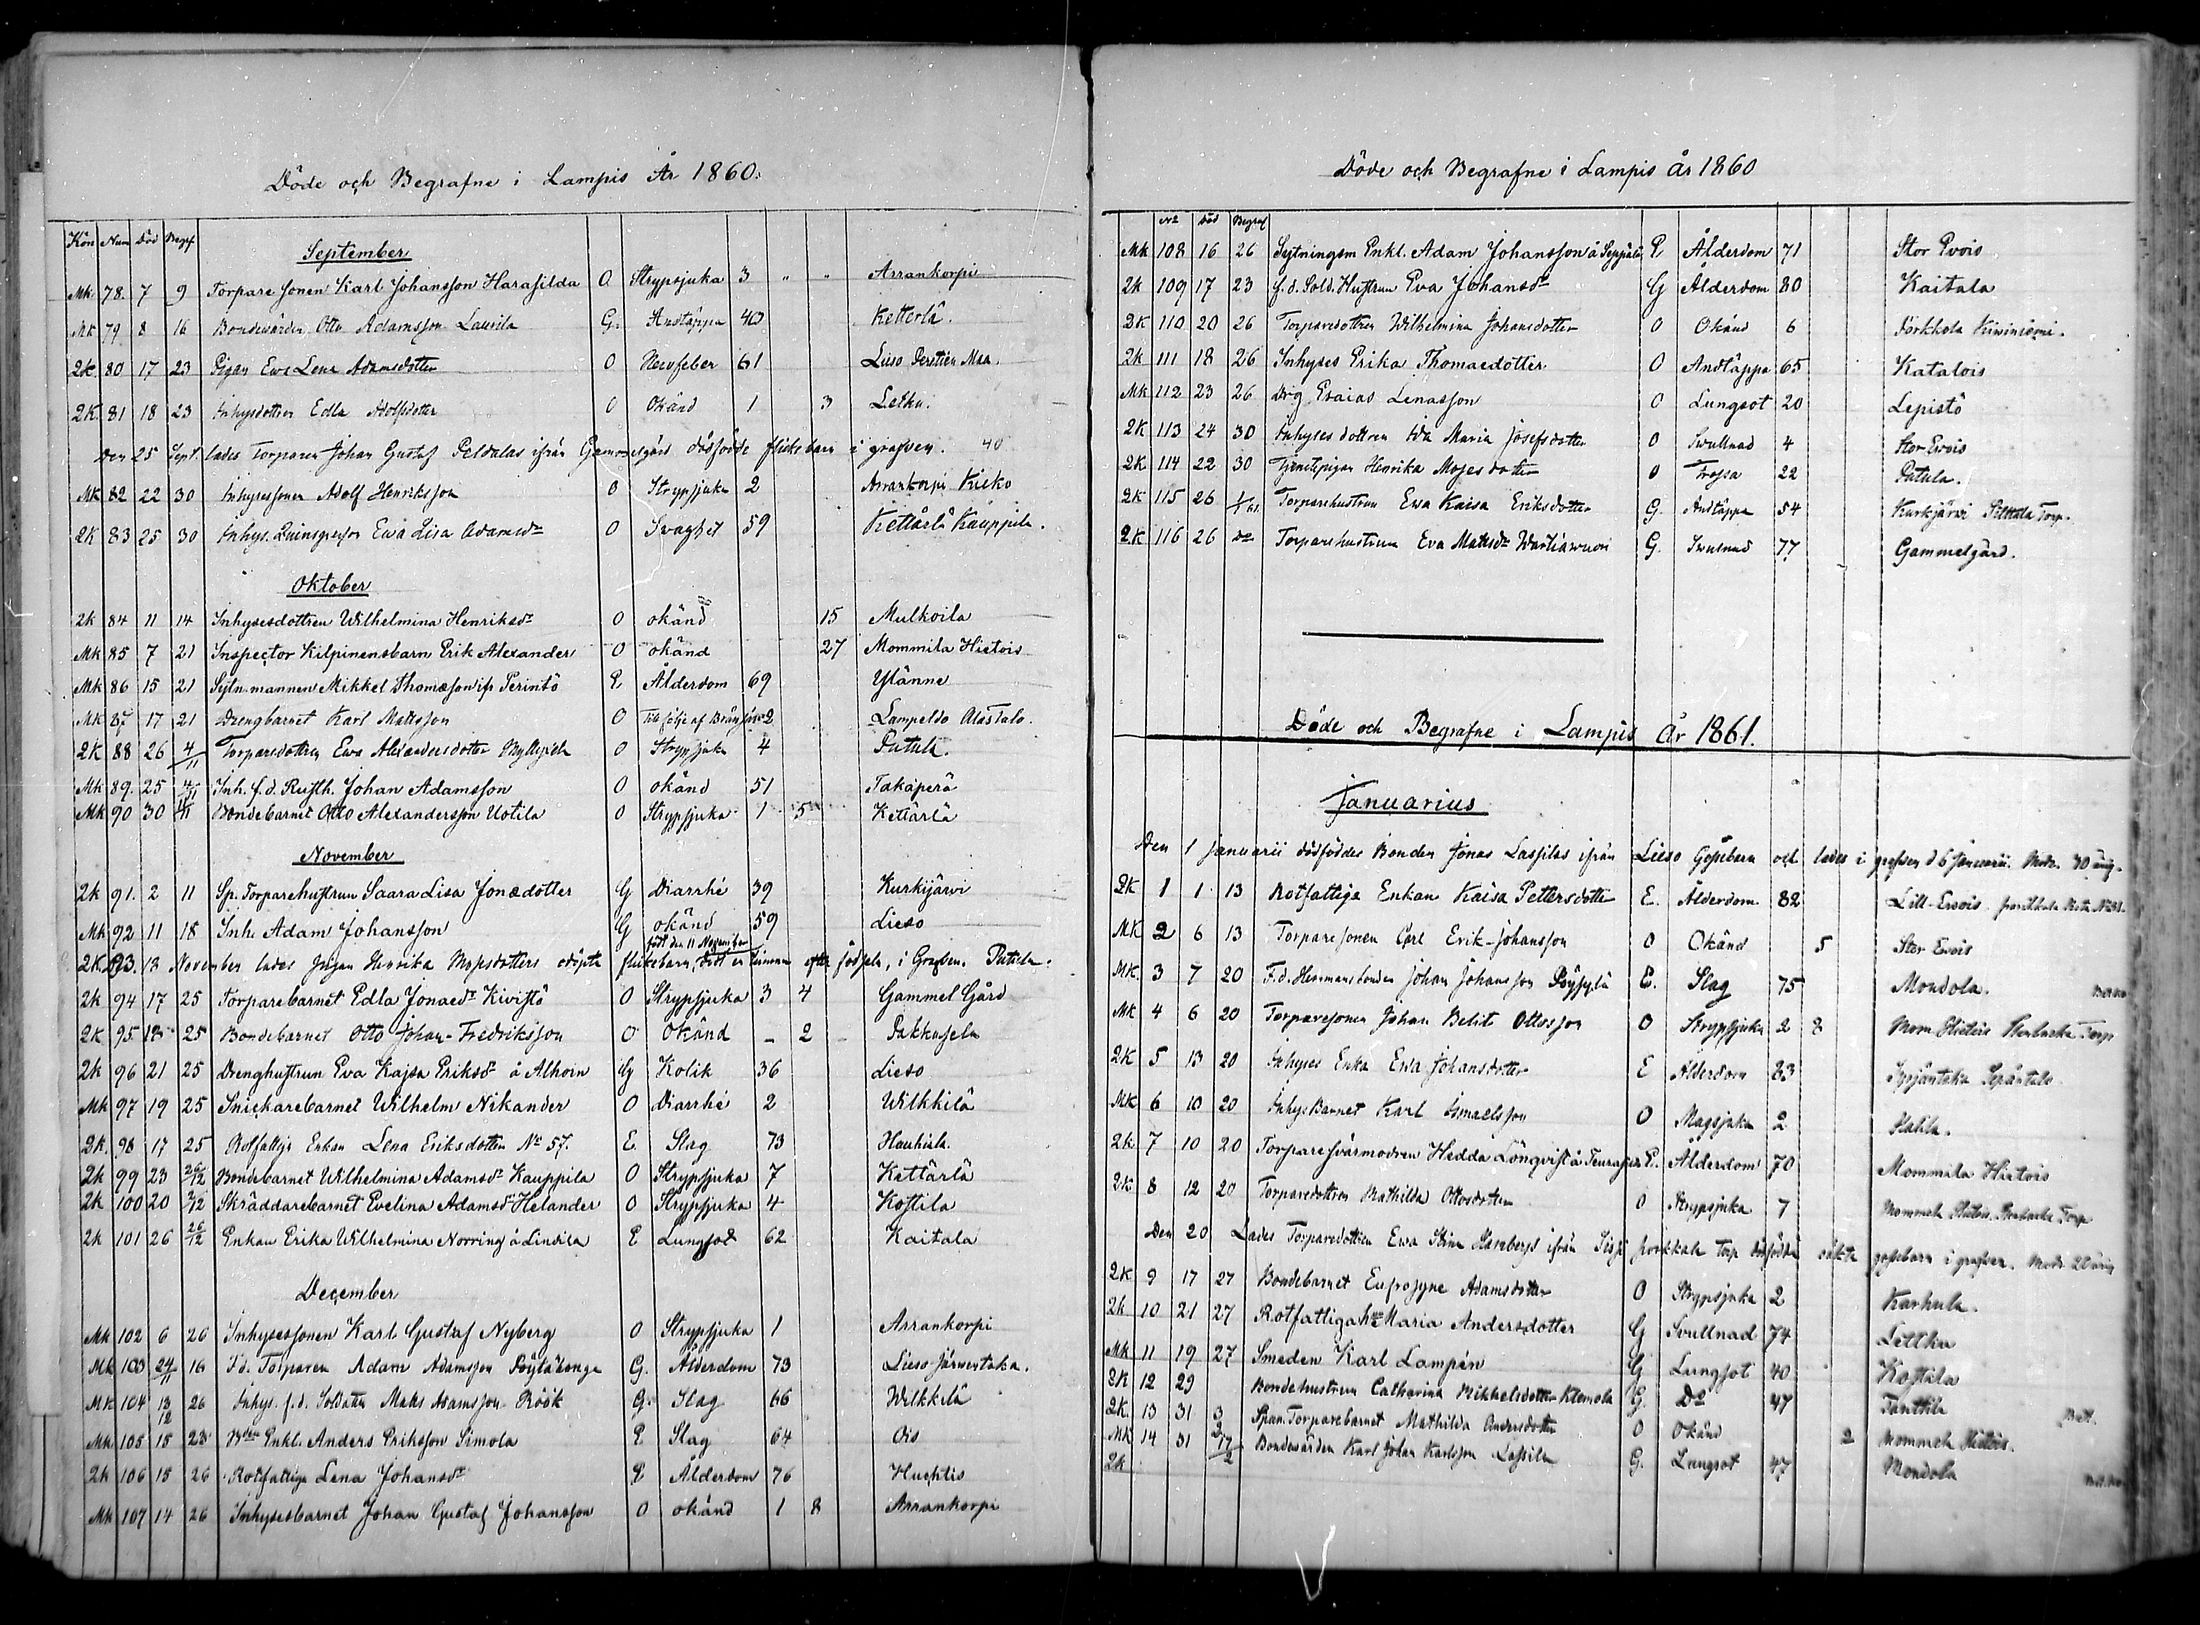 Döde och Begrafne i Lampis År 1860.
Kön Num Död Begrf
September
Mk. 78. 7 9 Torpare sonen Karl Johansson Harasilda O Strypsjuka 3 " " Arrankorpi
Mk 79 8 16 Bondevärden Otto Adamsson Laurila G. Andtäppa 40 Ketterlä.
2K 80 17 23 Pigan Ewa Lena Adamsdotter O Nervfeber 61 Lieso
2K. 81 18 23 Inhysdottren Edla Adolfsdotter O Okänd 1 3 Letku.
Den 25 Sept. lades Torparen Johan Gustaf Peldalas ifrån Gammelgård dödfödde flickebarn i grafven. 40
Mk 82 22 30 Inhysessonen Adolf Henriksson O Strypsjuka 2 Arrankorpi Kieko
2K 83 25 30 Inhys. Quinsperson Ewa Lisa Adamsdr O Svaghet 59 Kettärlä Kauppila.
Oktober
2k 84 11 14 Inhysesdottren Wilhelmina Henriksdr O okänd 15 Mulkoila
Mk 85 7 21 Inspector Kilpinens barn Erik Alexander O okänd 27 Mommila Hietois
Mk 86 15 21 Sytn. mannen Mikkel Thomæson ifr Perintö E Ålderdom 69 Ylänne
Mk 87 17 21 Drengbarnet Karl Mattsson O Till följe af 2 Lampeldo Alastalo.
2K 88 26 4/11 Torparedottren Ewa Alexandersdotter O Strypsjuka 4 Patula.
Mk 89. 25 4/11 Inh. f.d. Rusth. Johan Adamsson O okänd 51 Takaperä
Mk 90 30 4/11 Bondebarnet Otto Alexandersson Uotila O Strypsjuka 1 5 Kettärlä
November
2k 91. 2 11 Sp. Torparehustrun Saara Lisa Jonædotter G Diarrhé 39 Kurkijärvi
Mk 92 11 18 Inh. Adam Johansson G okänd 59 Lieso
född den 11 November
2K 93. 18 November lades Pigan Henrika Mosesdotters odöpta flickebarn, dödt en timme efter födseln, i Grafven. Patula.
2k 94 17 25 Torparebarnet Edla Jonaedr Kivistö O Strypsjuka 3 4 Gammel Gård
2K 95. 18 25 Bondebarnet Otto Johan Fredriksson O Okänd - 2 - Pakkasela
2k 96 21 25 Drenghustrun Eva Kajsa Eriksdr å Alhoin G Kolik 36 Lieso
Mk 97 19 25 Snickarebarnet Wilhelm Nikander O Diarrhé 2 Wilkkilä
2K. 98 17 25 Rotfattige Enkan Lena Eriksdotter No 57. E. Slag 73 Hauhiala.
2k 99 23 26/12 Bondebarnet Wilhelmina Adamsdr Kauppila O Strypsjuka 7 Kettärlä
2k 100 20 2/12 Skräddarebarnet Evelina Adamsdr Helander O Strypsjuka 4 Kostila
2k 101 26 26/12 Enkan Erika Wilhelmina Norring å Lindila E Lungsot 62 Kaitala
December
Mk 102 6 26 Inhysessonen Karl Gustaf Nyberg O Strypsjuka 1 Arrankorpi
Mk 103 24/11 16 F.d. Torparen Adam Adamsson G. Ålderdom 73 Lieso Järwentaka.
Mk 104 13/12 26 Inhys. f.d. Soldaten Matts Adamsson Röök G. Slag 66 Wilkkilä
Mk 105 15 23 Bden Enkl. Anders Eriksson Simola E Slag 64 Ois
2k 106 15 26 Rotfattige Lena Johansdr E Ålderdom 76 Huehtis
Mk 107 14 26 Inhysesbarnet Johan Gustaf Johansson O okänd 1 8 Arrankorpi
Döde och Begrafne i Lampis År 1860
No Död Begraf
Mk 108 16 26 Sytningsm Enkl. Adam Johansson å Seppälä E Ålderdom 71 Stor Evois
2k 109 17 23 f.d. Sold. Hustrun Eva Johansdr G Ålderdom 80 Kaitala
2K 110 20 26 Torparedottren Wilhelmina Johansdotter O Okänd 6 Porkkala Kiwiniemi.
2k 111 18 26 Inhyses Erika Thomaedotter O Andtäppa 65 Katalois
Mk 112 23 26 Drg Esaias Lenasson O Lungsot 20 Lepistö
2K 113 24 30 Inhyses dottren Ida Maria Josefsdotter O Swullnad 4 Stor Evois
2K 114 22 30 Tjenstepigan Henrika Mosesdotter O Frossa 22 Patula.
2K 115 26 1/1 61. Torparehustrun Ewa Kaisa Eriksdotter G. Andtäppa 54 Kurkjärwi Torp.
2K 116 26 do Torparehustrun Eva Mattsdr G. Swulnad 77 Gammelgård.
Döde och Begrafne i Lampis År 1861.
Januarius
Den 1 Januarii dödföddes Bonden Jonas Lassilas ifrån Lieso Gossebarn och lades i grafven d 6 Januarii. Modr. 30 årig.
2K 1 1 13 Rotfattige Enkan Kaisa Pettersdotter E. Ålderdom 82 Lill-Evois
MK 2 6 13 Torparesonen Carl Erik Johansson O Okänd 5 Stor Evois
MK. 3 7 20 F.d. Hemmansbonden Johan Johansson E. Slag 75 Mondola.
Mk 4 6 20 Torparesonen Johan Ottosson O Strypsjuka 2 8 Mom. Hietois Torp
2K 5 13 20 Inhyses Enka Ewa Johansdotter E Ålderdom 83
MK 6 10 20 Inhys Barnet Karl Ismaelsson O Magsjuka 2
2k 7 10 20 Torparesvärmodren Hedda Lönqvist å E. Ålderdom 70 Mommila Hietois
2k 8 12 20 Torparedottren Mathilda Ottosdotter O Strypsjuka 7 Mommila Hietois Torp
Den 20 Lades Torparedottren Ewa Stina ifrån porkkala Torp dödfödda oäkta gossebarn i grafven.
2K 9 17 27 Bondebarnet Eufrosyne Adamsdotter O Strypsjuka 2 Karhula.
2k 10 21 27 Rotfattiga hu Maria Andersdotter G Svullnad 74 Lettku
Mk 11 19 27 Smeden Karl Lampén G Lungsot 40 Kostila
2K 12 29 Bondehustrun Catharina Mikkelsdotter Klemola G. Do 47 Tanttila
2K. 13 31 3/2 Torparebarnet Mathilda Andersdotter O Okänd 2 Mommila Hietois.
Mk 14 31 17/2 Bondevärden Karl Johan Karlsson Lassila G. Lungsot 47 Mondola
2k